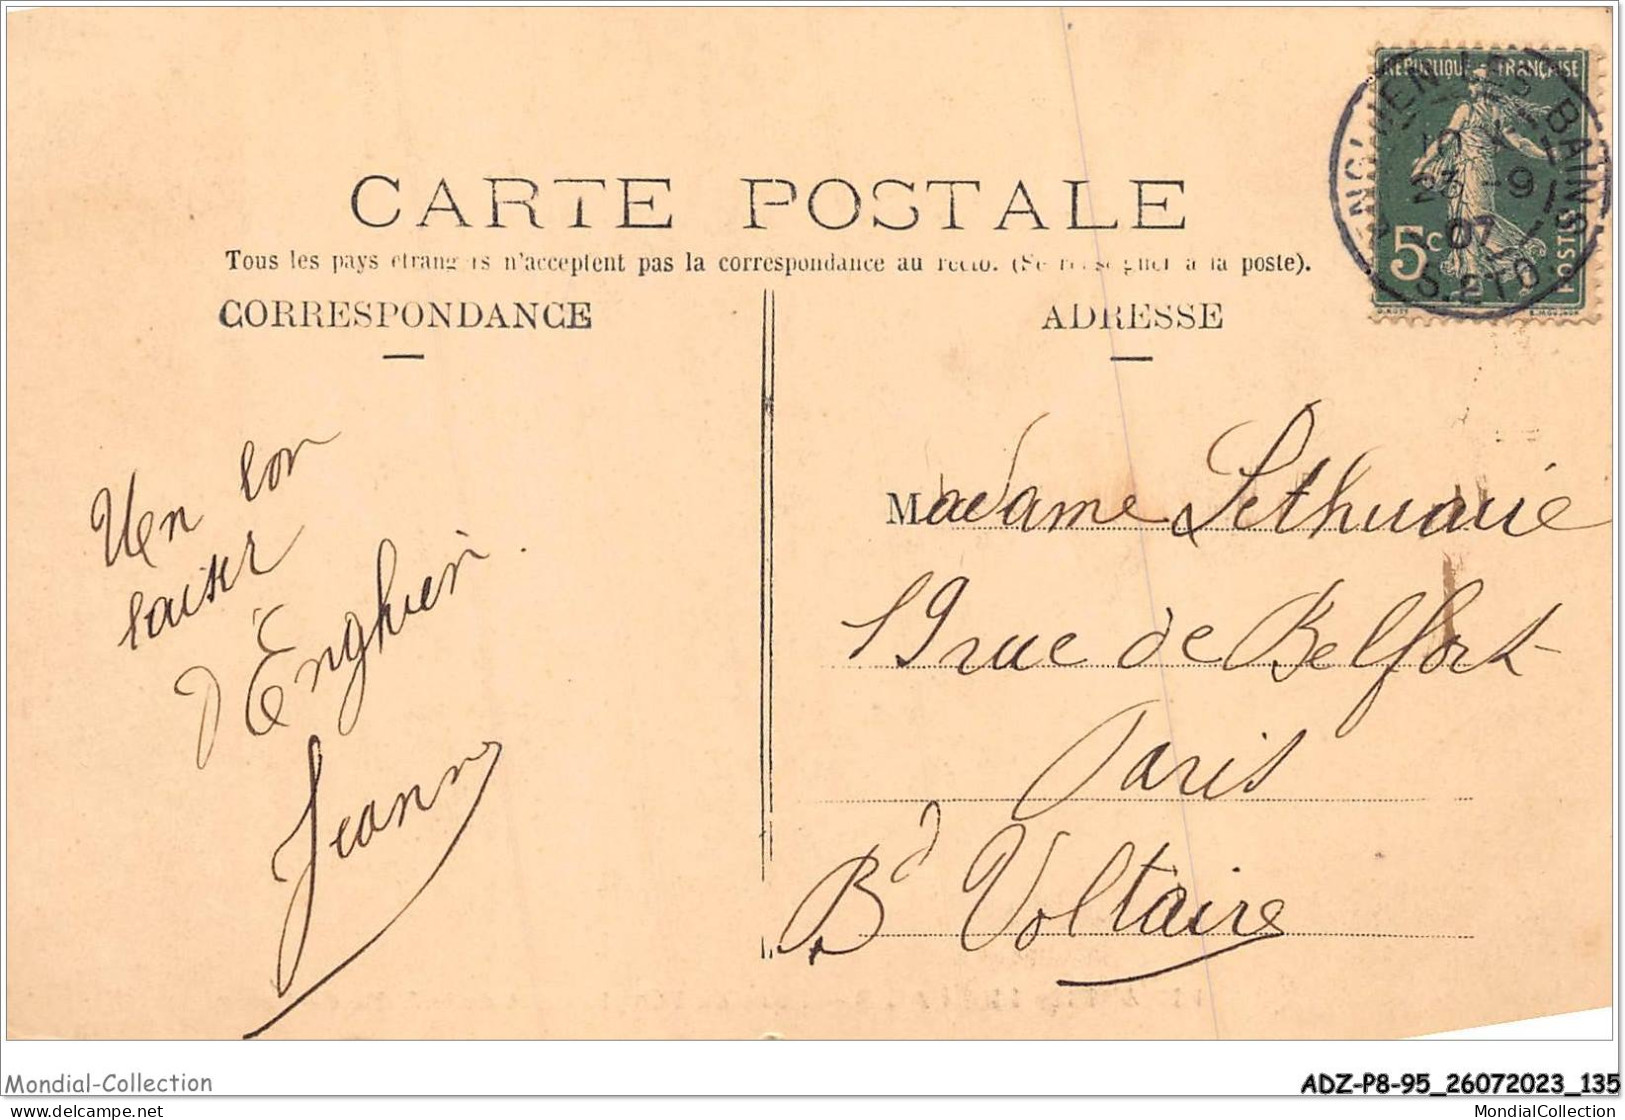 RÉPUBLIQUE FRANÇAISE
ENGHIEN-LES-BAINS
23 -9
07
S.ETO.
5c
POSTES
CARTE POSTALE
Tous les pays étrangers n'acceptent pas la correspondance au recto. (Se renseigner à la poste).
CORRESPONDANCE
ADRESSE
Un bon
baiser
d'Enghien.
Jeanne
Madame
19 rue de Belfort
Paris
Bd Voltaire
Mondial-Collection
ADZ-P8-95_26072023_135
www.delcampe.net
MondialCollection